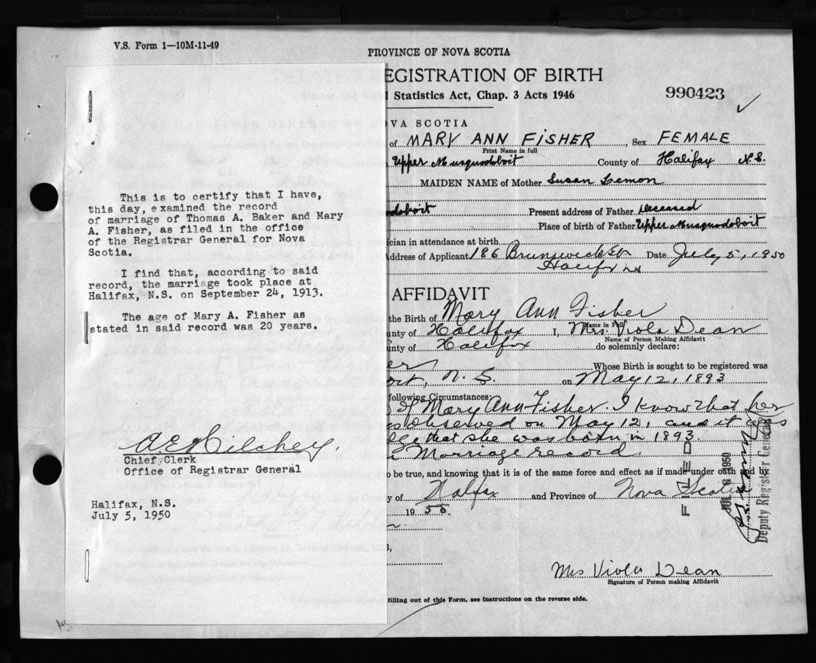 V.S. Form 1—10M-11-49
PROVINCE OF NOVA SCOTIA
EGISTRATION OF BIRTH
l Statistics Act, Chap. 3 Acts 1946
990423
OVA SCOTIA
of MARY ANN FISHER, Sex FEMALE
Print Name in full
Upper Musquodoboit County of Halifax N.S.
MAIDEN NAME of Mother Susan Lemon
doboit Present address of Father Deceased
Place of birth of Father Upper Musquodoboit
ician in attendance at birth
Address of Applicant 186 Brunswick St Date July 5, 1950
Halifax NS
This is to certify that I have,
this day, examined the record
of marriage of Thomas A. Baker and Mary
A. Fisher, as filed in the office
of the Registrar General for Nova
Scotia.
I find that, according to said
record, the marriage took place at
Halifax, N.S. on September 24, 1913.
The age of Mary A. Fisher as
stated in said record was 20 years.
Chief Clerk
Office of Registrar General
Halifax, N.S.
July 5, 1950
AFFIDAVIT
the Birth of Mary Ann Fisher
Name in Full
ounty of Halifax I, Mrs. Viola Dean
Name of Person Making Affidavit
unty of Halifax do solemnly declare:
er Whose Birth is sought to be registered was
oit, N.S. on May 12, 1893
following Circumstances:
of Mary Ann Fisher. I know that her
observed on May 12, and it
dge that she was born in 1893.
Marriage record.
to be true, and knowing that it is of the same force and effect as if made under oath and by
ty of Halifax and Province of Nova Scotia
1950.
FILED
JUL 1950
Deputy Registrar General
Mrs Viola Dean
Signature of Person making Affidavit
filling out of this Form, see Instructions on the reverse side.